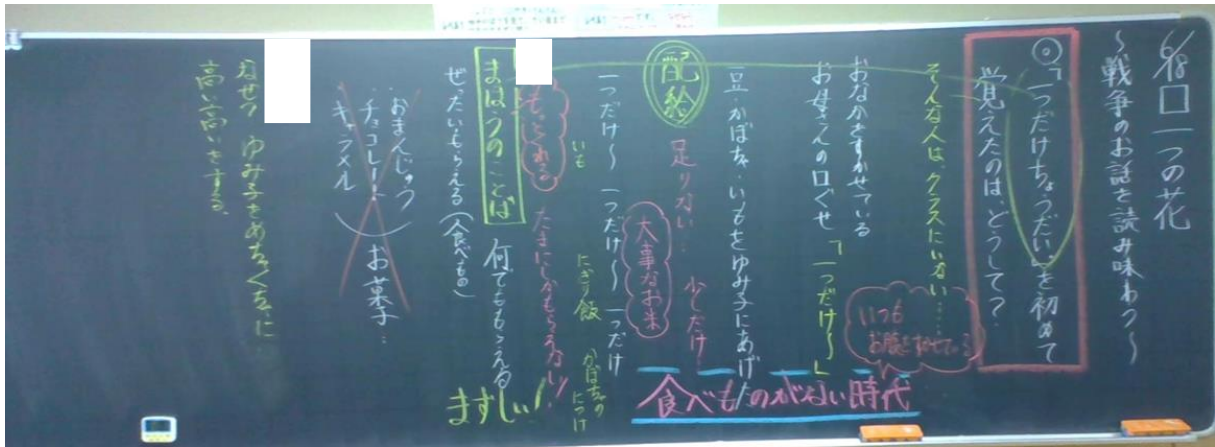 6/18 □ 一つの花
〜戦争のお話を読み味わう〜
◎「一つだけちょうだい」を初めて
覚えたのは、どうして？
そんな人は、クラスにいない……
いつも
お腹をすかせている
おなかをすかせている
お母さんの口ぐせ「一つだけ〜」
豆・かぼちゃ・いもをゆみ子にあげた
食べものがない時代
配給
足りない…
少しだけ
大事なお米
一つだけ〜 一つだけ〜 一つだけ
いも
にぎり飯
かぼちゃの
につけ
もらえる
たまにしかもらえない!
まほうのことば
何でももらえる
まずしい!
ぜったいもらえる(食べもの)
おまんじゅう
チョコレート
キャラメル
お菓子…
なぜ？ ゆみ子をめちゃくちゃに
高い高いをする。